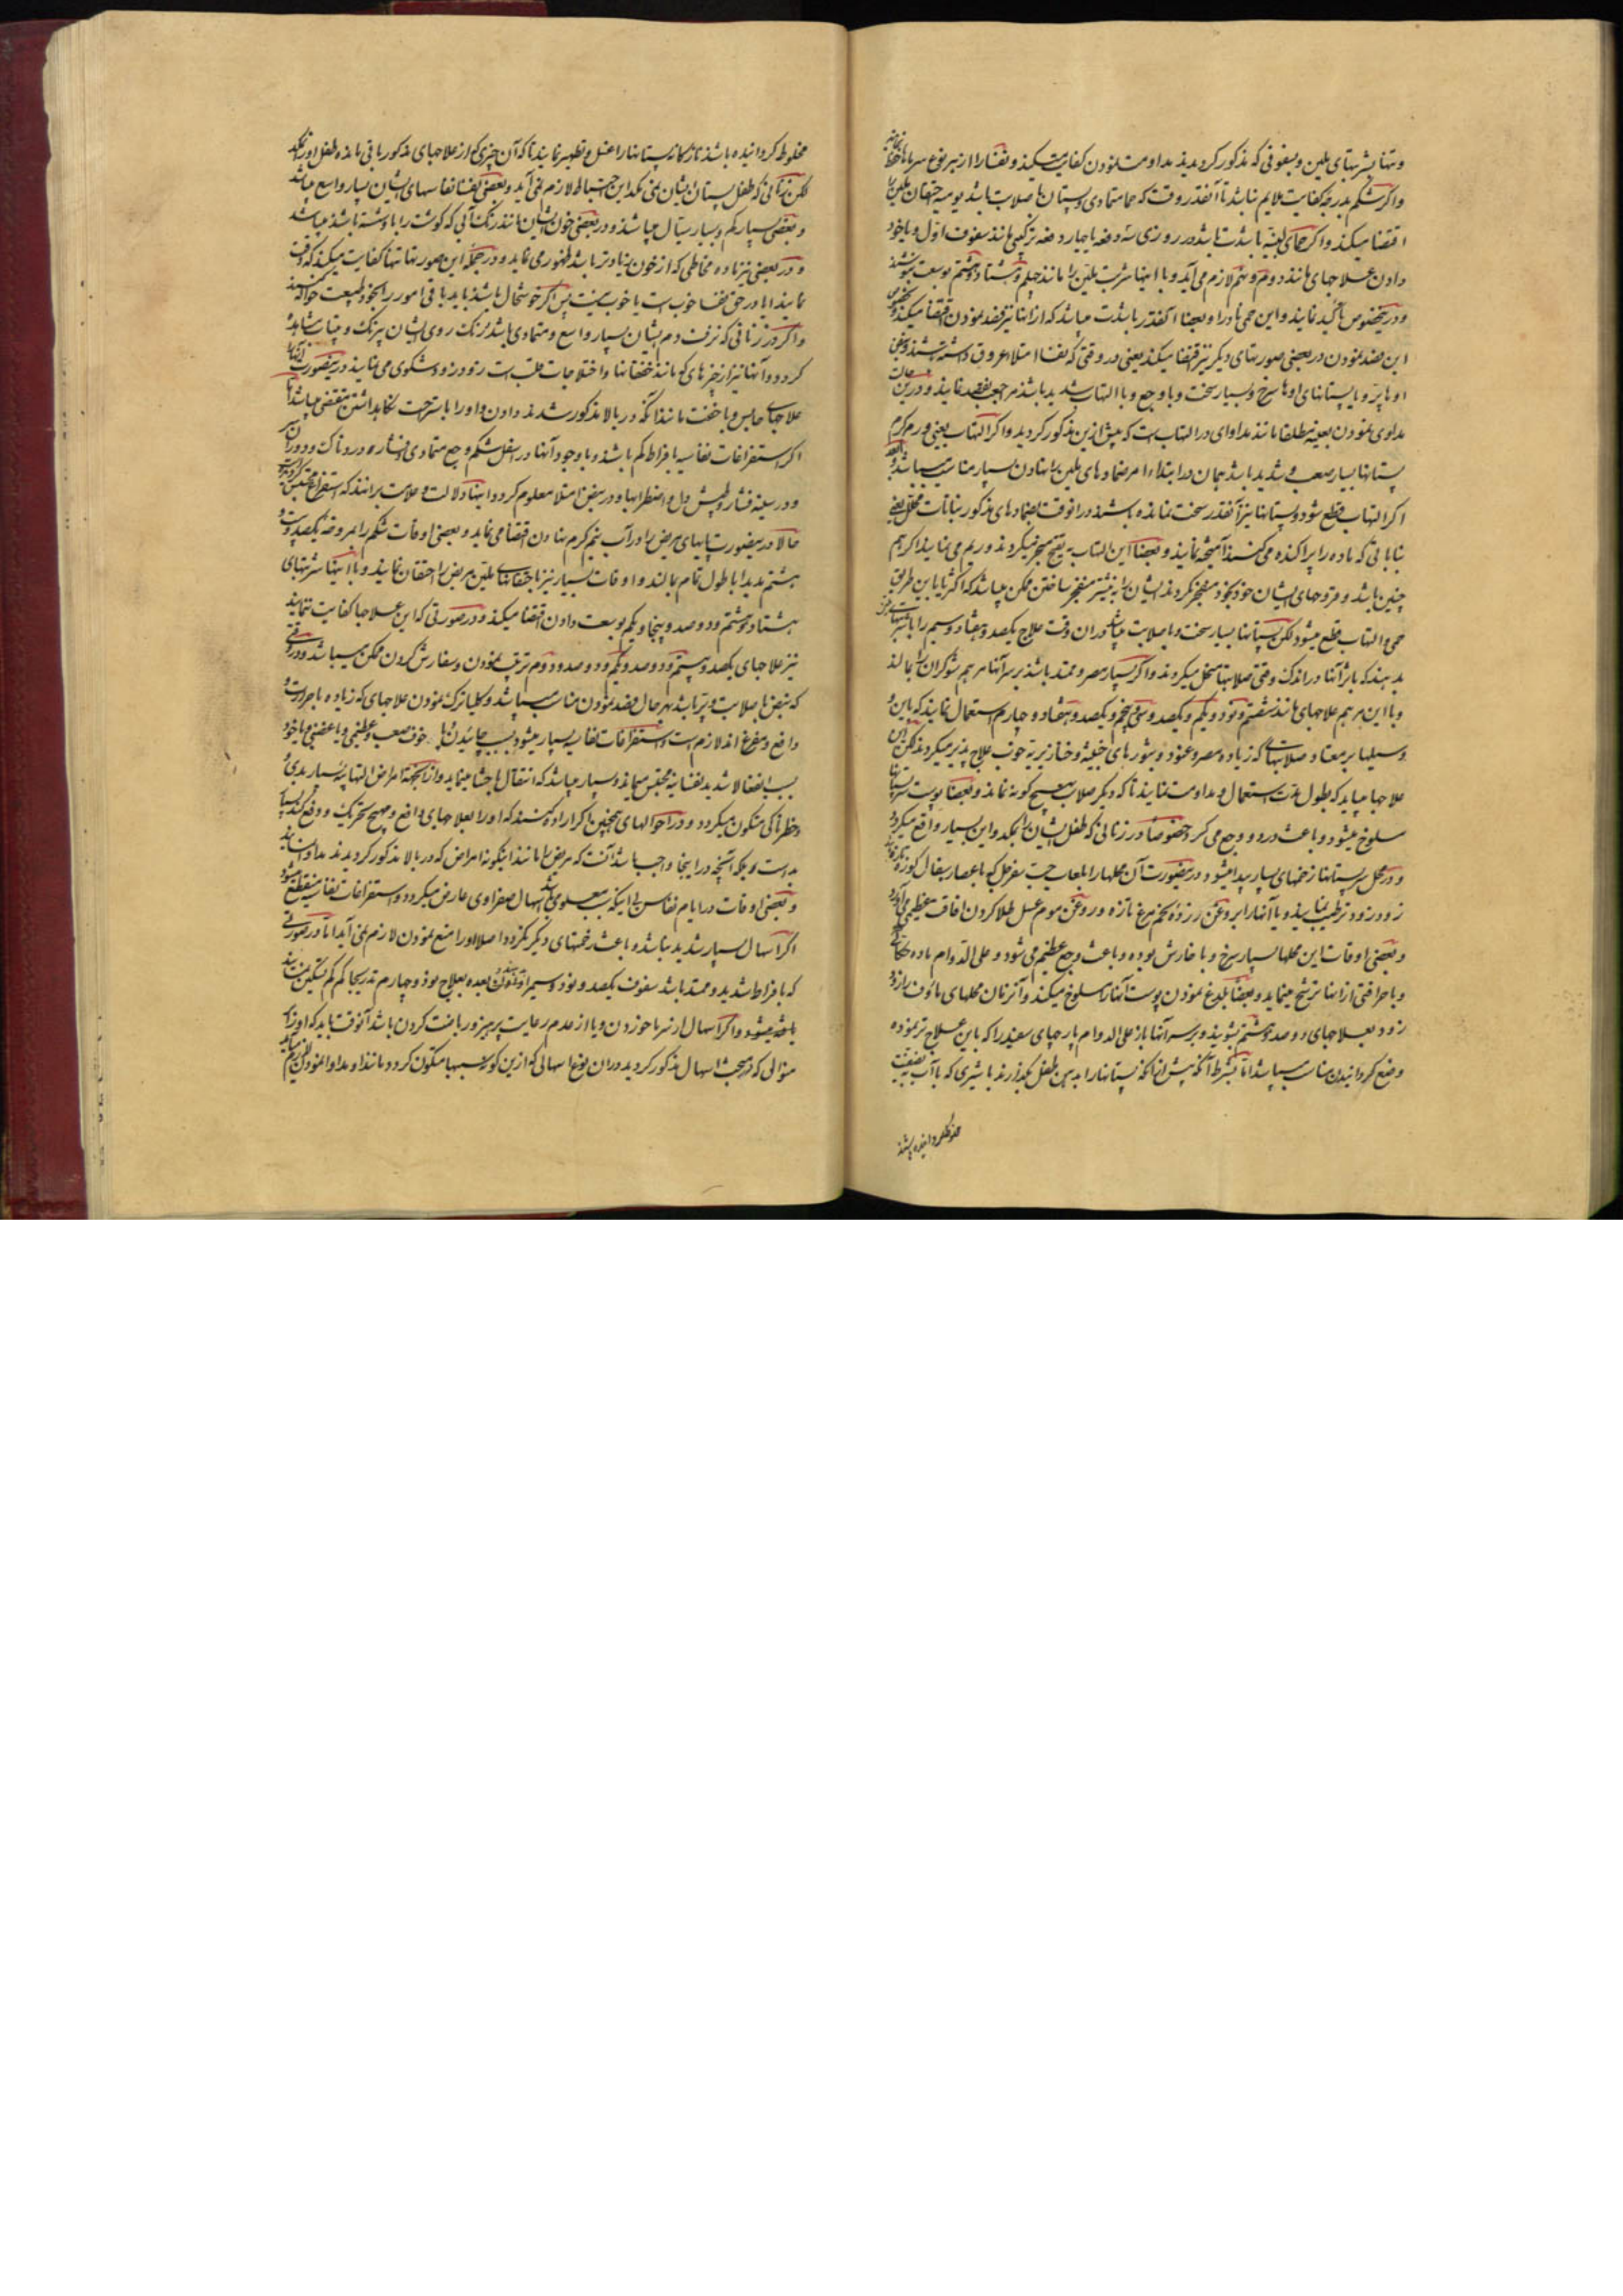 و تنها بشربتهای ملین و بسفوفی که مذکور کردیده مداومت نمودن کفایت میکند و نفسا را از هر نوع سرما
و اکر شکم بدرجه کفایت ملایم نباشد تا آنقدر وقت که حما متمادی و پستان ها صلابت باشد یومیه احتقان ملین را
اقتضا میکند و اکر حمای لبنیه باشدت باشد در روزی سه دفعه یا چهار دفعه ترکیبی مانند سفوف اول و یا خود
دادن علاجهای مانند دوم و نهم لازم می آید و با اینها شربت ملین را مانند چهلم و هشتاد و هشتم بوسعت بنوشند
و در ینخصوص تأکید نمایند و این حمی نادرا و بعضا آنقدر باشدت میباشد که از آنها نیز فصد نمودن اقتضا میکند و
این فصد نمودن در بعضی صورتهای دیکر نیز اقتضا میکند یعنی در وقتی که نفسا امتلا عروق داشته باشند
او ها پر و یا پستانهای او ها سرخ و بسیار سخت و با وجع و با التهاب شدید باشد مراجعت بفصد نمایند و در این حالت
مداوی نمودن بعینه مطلقا مانند مداوای در التهاب است که پیش ازین مذکور کردید و اکر التهاب یعنی ورم کرم
پستانها بسیار صعب و شدید باشد همان در ابتداء امر ضمادهای ملین را نهادن بسیار مناسب میباشد
اکر التهاب قطع شود و پستانها نیز آنقدر سخت نمانده باشند در آنوقت بضمادهای مذکور نباتات محلل یعنی
نباتاتی که ماده را پراکنده می کنند آمیخته نمایند و بعضا این التهاب به تقیح منجر میکردند و ریم می نمایند اکر هم
چنین باشد و قروحهای ایشان خود بخود منفجر نکردند ایشان را به نیشتر منفجر ساختن ممکن میباشد که اکثریا باین طریق
حمی و التهاب قطع میشود لکن پستانها بسیار سخت و با صلابت میباشد در آن وقت علاج یکصد و هفتاد و سیم را
بدهند که بامر آنها در اندک وقتی صلابتها منحل میکردند و اکر بسیار مصر و ممتد باشند بر سر آنها مرهم شوکران را بمالند
و با این مرهم علاجهای مانند شصتم و نود و یکم و یکصد و سی و پنجم و یکصد و هفتاد و چهارم استعمال نمایند که باین
وسیلها بر معتاد صلابتهای که زیاده مصر و عنود و بثورهای خبیثه و خنازیریه خوب علاج پذیر میکردند لکن این
علاجها میباید که بطول مدت استعمال و مداومت نمایند تا که دیکر صلابت هیچ کونه نماند و بعضا پوست سر پستان
سلوخ میشود و باعث درد و وجع می کردد خصوصا در زنانی که طفل ایشان را بمکد و این بسیار واقع میکردد
و در محل سر پستانها زخمهای بسیار پیدا میشود در ینصورت آن محلها را بلعاب حب سفرجل که با عصاره بقال کوزه
زود زود ترطیب نمایند و یا آنها را بروغن زرده تخم مرغ تازه و روغن موم عسل طلا کردن افاقت عظیمی می آورد
و بعضی اوقات این محلها بسیار سرخ و با خارش بوده و باعث وجع عظیم می شود و علی الدوام ماده
و با حراقتی از آنها ترشح مینماید و بعضا بلدغ نمودن پوست آنها را سلوخ میکند و آنزمان محلهای مائوف را زود
زود بعلاجهای دو صد و هشتم بشویند و بر سر آنها باز علی الدوام پارچهای سفید را که باین علاج تر نموده
وضع کردانیدن مناسب میباشد اما بشرط آنکه پیش از آنکه پستانها را بدهن طفل بگذارند با شیری که با آب بنصفیت
مخلوط کردانیده باشند
مخلوط کردانیده باشند تازه کانه پستانها را غسل و تطهیر نمایند تا که آن چیزی که از علاجهای مذکور باقی مانده طفل او را نمکد
لکن زنانی که طفل پستان ایشان نمی مکد این احتیاط لازم نمی آید و بعضی نفسا نفاسهای ایشان بسیار واسع میباشد
و بعضی بسیار کم و بسیار سیال میباشد و در بعضی خون ایشان مانند رنک آبی که کوشت را با او شسته باشند میباشد
و در بعضی نیز ماده مخاطی که از خون زیادتر باشد ظهور می نماید و در جمله این صورتها تنها کفایت میکند که دقت
نمایند آیا در حق نفسا خوب است یا خوب نیست پس اکر خوشحال باشند باید باقی امور را بخود طبیعت حواله کنند
و اکر در زنانی که نزفت دم ایشان بسیار واسع و متمادی باشد رنک روی ایشان بی رنک و بیتاب مشاهده
کردد و آنها نیز از چیزهای که مانند خفقانها و اختلاجات قلب است زود زود شکوی می نمایند در ینصورت آنها را
علاجهای حابس و با خفت مانند آنکه در بالا مذکور شدند دادن و او را باستراحت نکاه داشتن مقتضی میباشد اما
اکر استفراغات نفاسیه بافراط کم باشد و با وجود آنها در اسفل شکم وجع متمادی و فشاره دردناک و دوران سر
و در سینه فشار و طپش دل و اضطرابها و در نبض امتلا معلوم کردد اینها دلالت و علامت برانند که استفراغ محتبس
حالا در ینصورت پایهای مریض را در آب نیم کرم نهادن اقتضا می نماید و بعضی اوقات شکم را بمروخه یکصد و
هشتم بدیدا با طول تمام بمالند و اوقات بسیار نیز با حقنهای ملین مریض را احتقان نمایند و با اینها شربتهای
هشتاد و هشتم و دو صد و پنجاه و یکم بوسعت دادن اقتضا میکند و در صورتی که این علاجها کفایت ننمایند
نیز علاجهای یکصد و بیستم و دو صد و یکم و دو صد و دوم ترتیب نمودن و سفارش کردن ممکن میباشد و در وقتی
که نبض با صلابت و پر باشد بهر حال فصد نمودن مناسب میباشد و کلیا ترک نمودن علاجهای که زیاده با حرارت
دافع و مفرغ اند لازم است و استفراغات نفاسیه بسیار میشود بسبب چائیدن یا خوف صعب و عظیمی و یا غضبی و یا خود
بسبب انفعالا شدید نفسانیه محتبس میماند و بسیار میباشد که انتقال باحشا مینماید و از آنجهته امراض التهابیه بسیار بدی
و خطرناکی متکون میکردد و در احوالهای همچنین اکر اراده کنند که او را بعلاجهای دافع و مهیج تحریک و دفع کنند بسیار
بد است و بلکه آنچه در اینجا واجب باشد آنست که مریض را مانند اینکونه امراض که در بالا مذکور کردیدند مداوا نمایند
و بعضی اوقات در ایام نفاس بی اینکه سبب معلومی باشد اسهال صفراوی عارض میکردد و استفراغات نفاسیه منقطع میشود
اکر اسهال بسیار شدید نباشد و باعث زحمتهای دیکر نکردد اصلا او را منع نمودن لازم نمی آید اما در صورتی
که بافراط شدید و ممتد باشد سفوف یکصد و نود و سیم را بنوشند و بعده بعلاج نود و چهارم تدریجا کم کم تسکین
یافته میشود و اکر اسهال از سرما خوردن و یا از عدم رعایت پرهیز و ریاضت کردن باشد آنوقت باید که او را بر
منوالی که در مبحث اسهال مذکور کردید در آن نوع اسهالی که ازین کونه سببها متکون کردد مانند او مداوا نمودن لازم